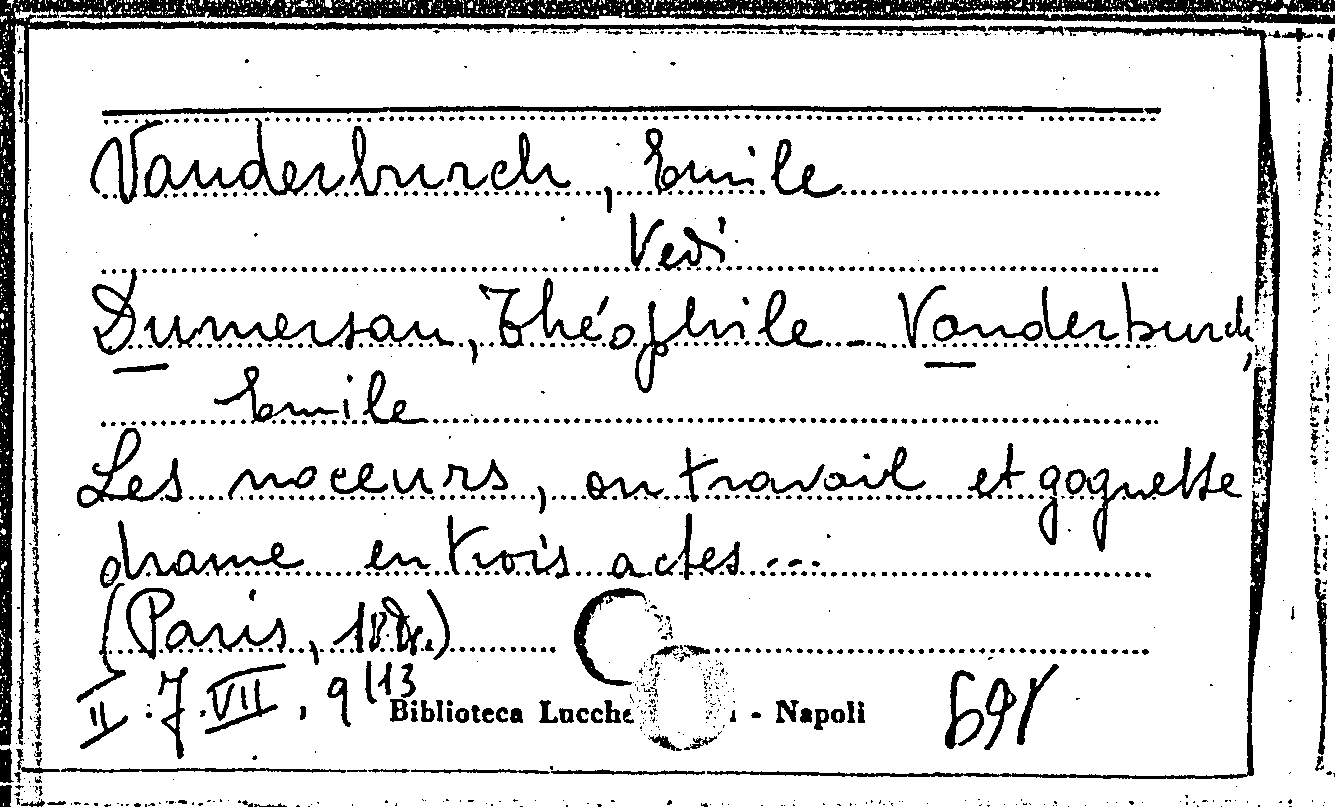 Vanderburch, Emile
Vedi
Dumersan, Théophile - Vanderburch,
Emile
Les noceurs, ou travail et goguette
drame en trois actes...
(Paris,
II. J. VII, 9 (13
Biblioteca - Napoli